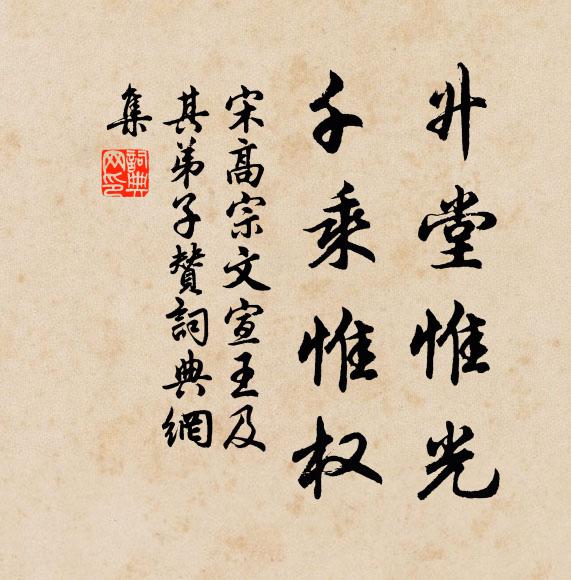 升堂惟光
千乘惟权
宋高宗文宣王及
其弟子赞詞典網
集
詞典网印